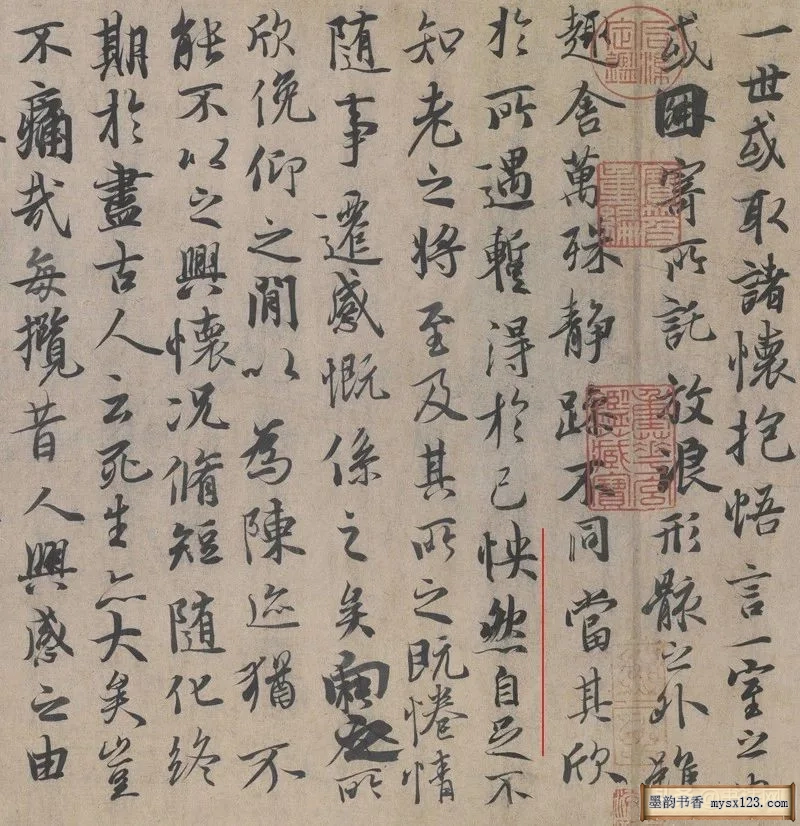 一世或取諸懷抱悟言一室之
或因寄所託放浪形骸之外雖
趣舍萬殊静躁不同當其欣
於所遇暫得於己怏然自足不
知老之將至及其所之既惓情
随事遷感慨係之矣向之所
欣俛仰之閒以為陳迹猶不
能不以之興懷况脩短随化終
期於盡古人云死生亦大矣豈
不痛哉每攬昔人興感之由
墨韵书香 mysx123.com